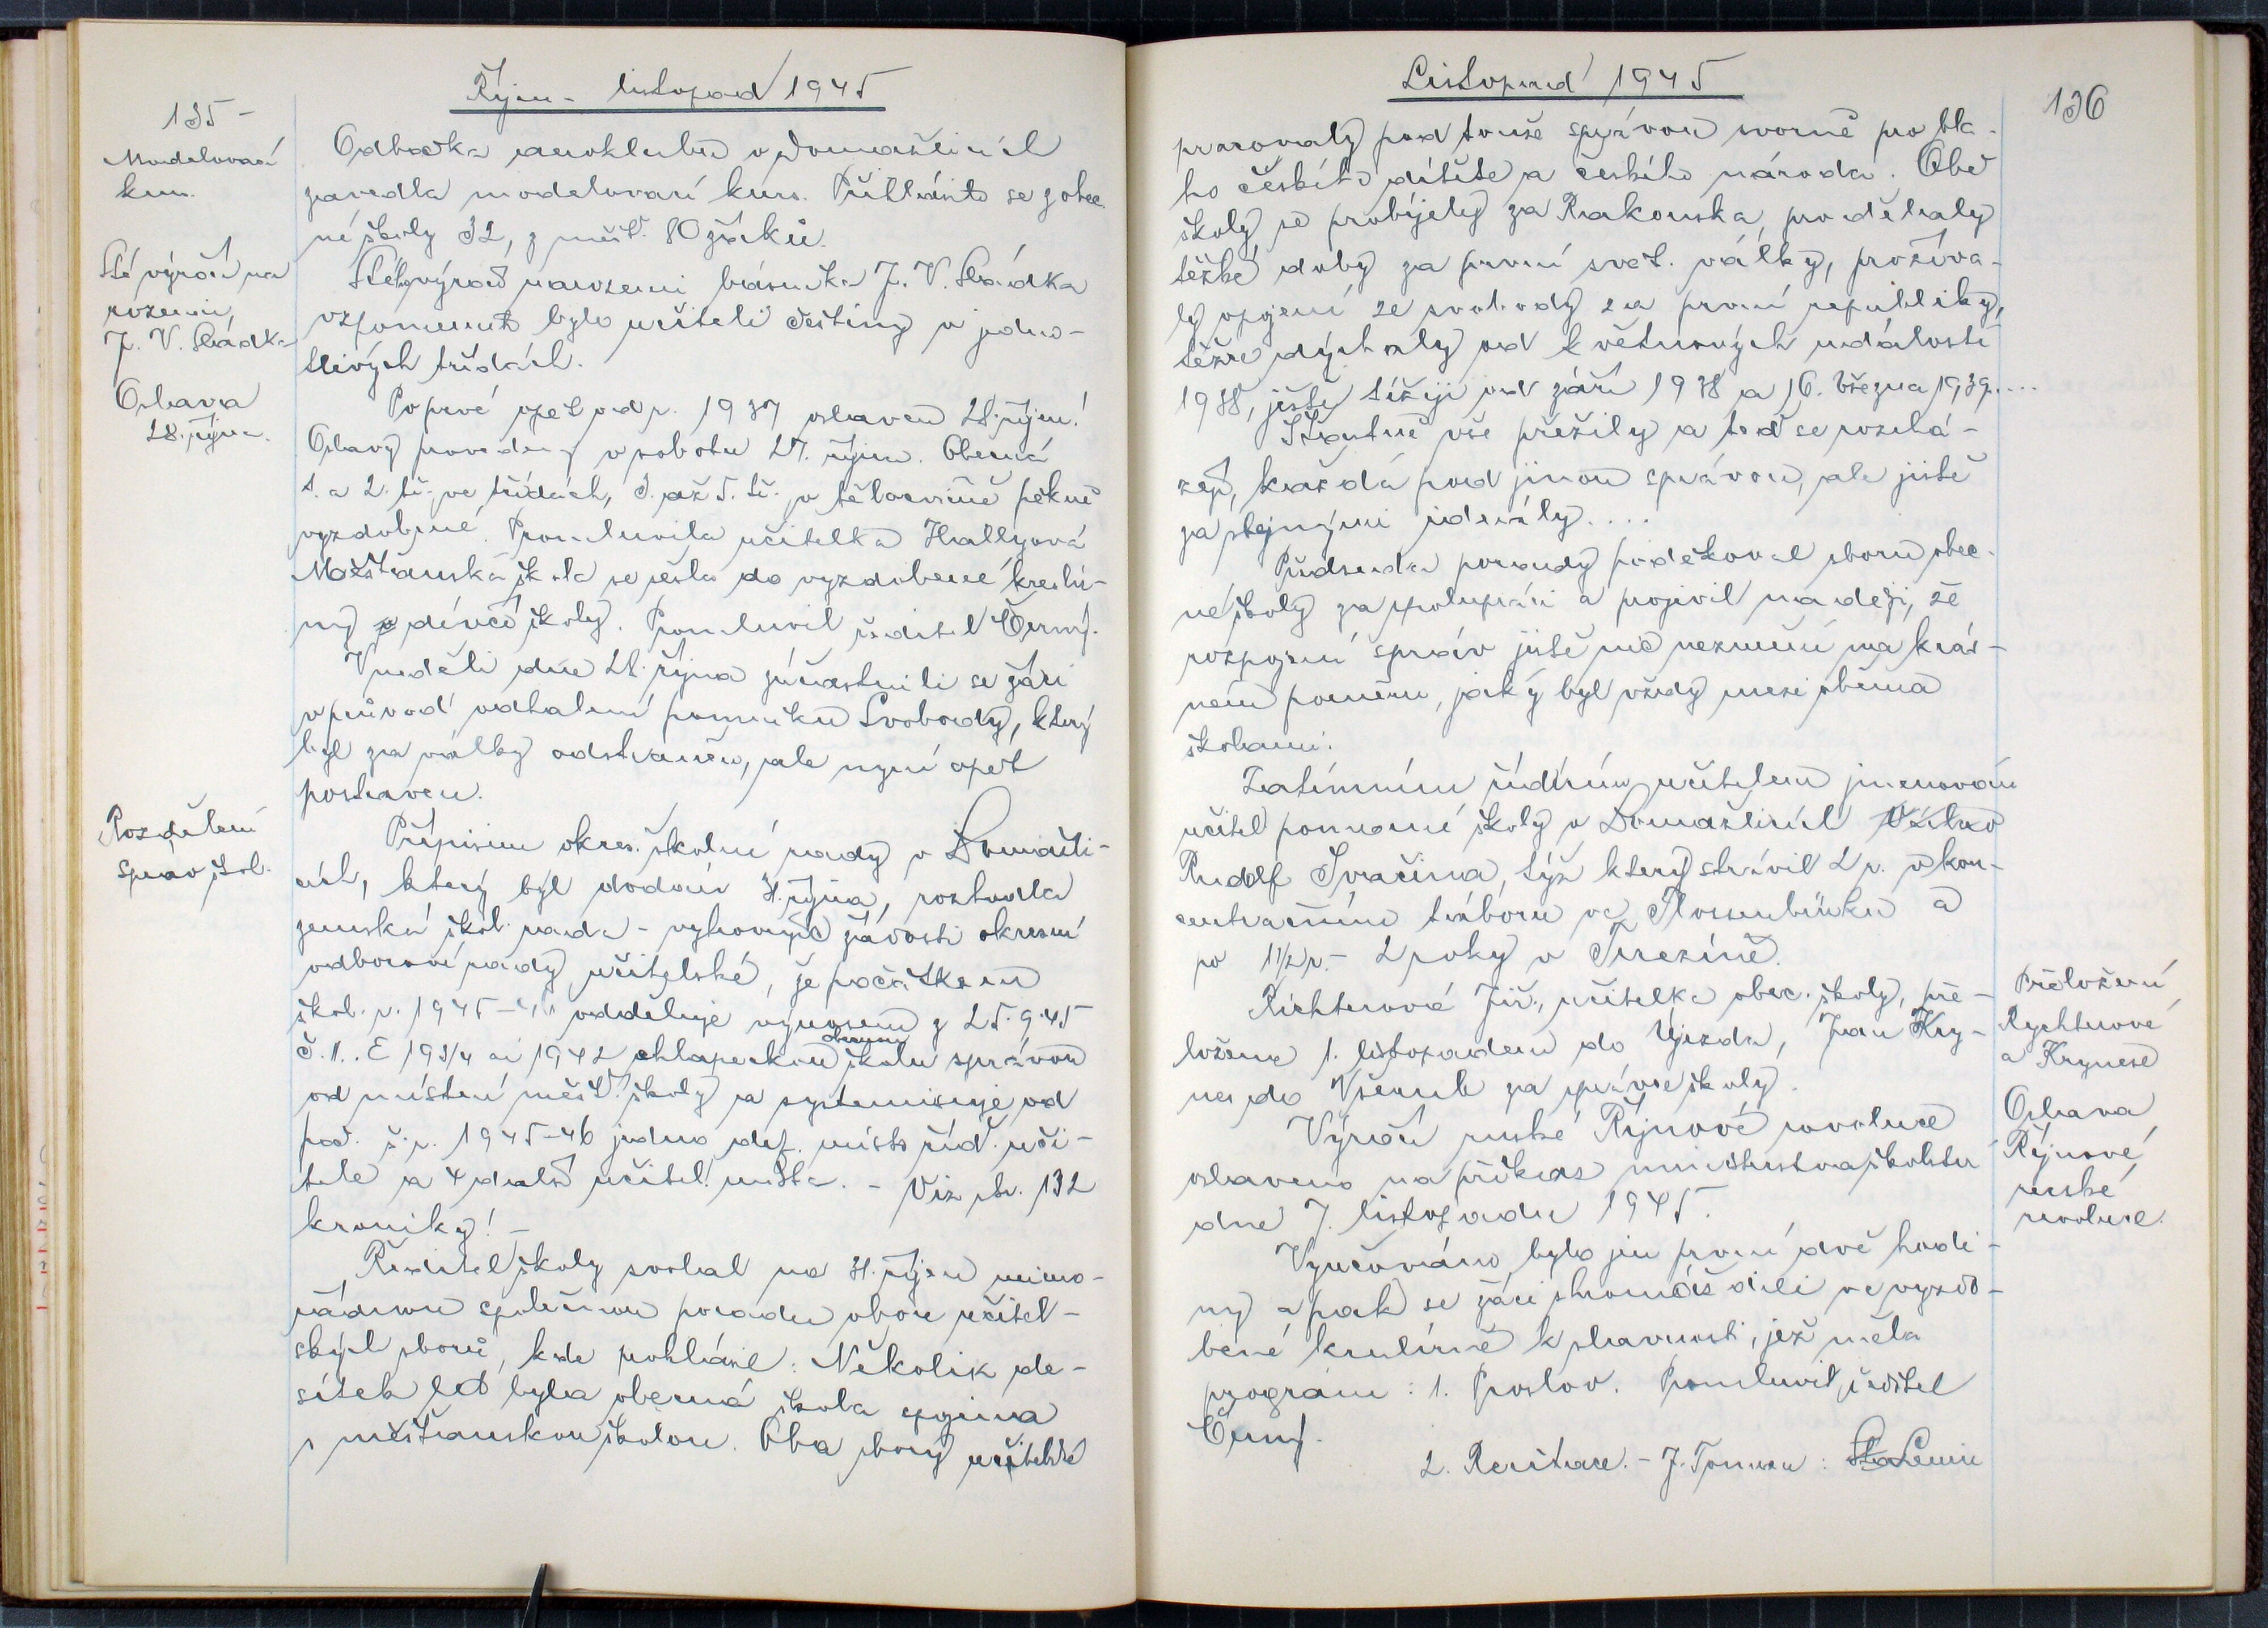 Říjen - listopad 1945
135 -
Modelovací
kurs.
Odbočka aeroklubu v Domažlicích
zavedla modelovací kurs. Přihlásilo se z obec.
né školy 32, z měšť. 80 žáků.
Sté výročí na
rození
J. V. Sládka
Stéhovýročí narození básníka J. V. Sládka
vzpomenuto bylo učiteli češtiny v jedno-
tlivých třídách.
Oslava
28. října.
Poprvé opět od r. 1937 oslaven 28. říjen!
Oslavy provedeny v sobotu 27. října. Obecná
1. a 2. tř. ve třídách, 3. až 5. tř. v tělocvičně pěkně
vyzdobené. Promluvila učitelka Hallyová
Měšťanská škola se sešla do vyzdobené kreslír-
ny dívčí školy. Promluvil ředitel Černý.
V neděli dne 28. října zúčastnili se žáci
v průvodě odhalení pomníku Svobody, který
byl za války odstraněn, ale nyní opět
postaven.
Rozdělení
správ škol.
Přípisem okres. školní rady v Domažli-
cích, který byl dodán 31. října, rozhodla
zemská škol. rada - vyhovujíc žádosti okresní
odborové rady učitelské, že počátkem
škol. r. 1945-46 odděluje výnosem z 25.9.45
č. II. E 193/4 ai 1942 chlapeckou obecnou školu správou
od místní měšť. školy a systemisuje od
poč. š. r. 1945-46 jedno def. místo říd. uči-
tele a 4 další učitel. místa. - Viz str. 132
kroniky! -
Ředitel školy svolal na 31. říjen mimo-
řádnou společnou poradu obou učitel-
ských sborů, kde prohlásil: Několik de-
sítek let byla obecná škola spojena
s měšťanskou školou. Oba sbory učitelské
Listopad 1945
136
pracovaly pod touže správou svorně pro bla-
ho českého dítěte a českého národa. Obě
školy se probíjely za Rakouska, prodělaly
těžké doby za první svět. války, prožíva-
ly opojení ze svobody za první republiky,
těžce dýchaly od květnových událostí
1938, ještě tížeji od září 1938 a 16. března 1939....
Šťastně vše přežily a teď se rozchá-
zejí, každá pod jinou správou, ale jistě
za stejnými ideály....
Předseda porady poděkoval sboru obec-
né školy za spolupráci a projevil naději, že
rozpojení správ jistě nic nezmění na krás-
ném poměru, jaký byl vždy mezi oběma
školami.
Zatímním řídícím učitelem jmenován
učitel pomocné školy v Domažlicích
Rudolf Svačina, týž který strávil 2 r. v kon-
centračním táboru ve Flossenbürku a
po 1 1/2 r. - 2 roky v Terezíně.
Přeložení
Rychterové
a Krynese
Richterová Jiř., učitelka obec. školy, pře-
ložena 1. listopadem do Újezda, Jan Kry-
nes do Všerub za správce školy.
Oslava
Říjnové
ruské
revoluce.
Výročí ruské Říjnové revoluce
oslaveno na příkaz ministerstva školství
dne 7. listopadu 1945.
Vyučováno bylo jen první dvě hodi-
ny a pak se žáci shromáždili ve vyzdo-
bené kreslírně k slavnosti, jež měla
program: 1. Proslov. Promluvil ředitel
Černý.
2. Recitace. - J. Toman: Lenin